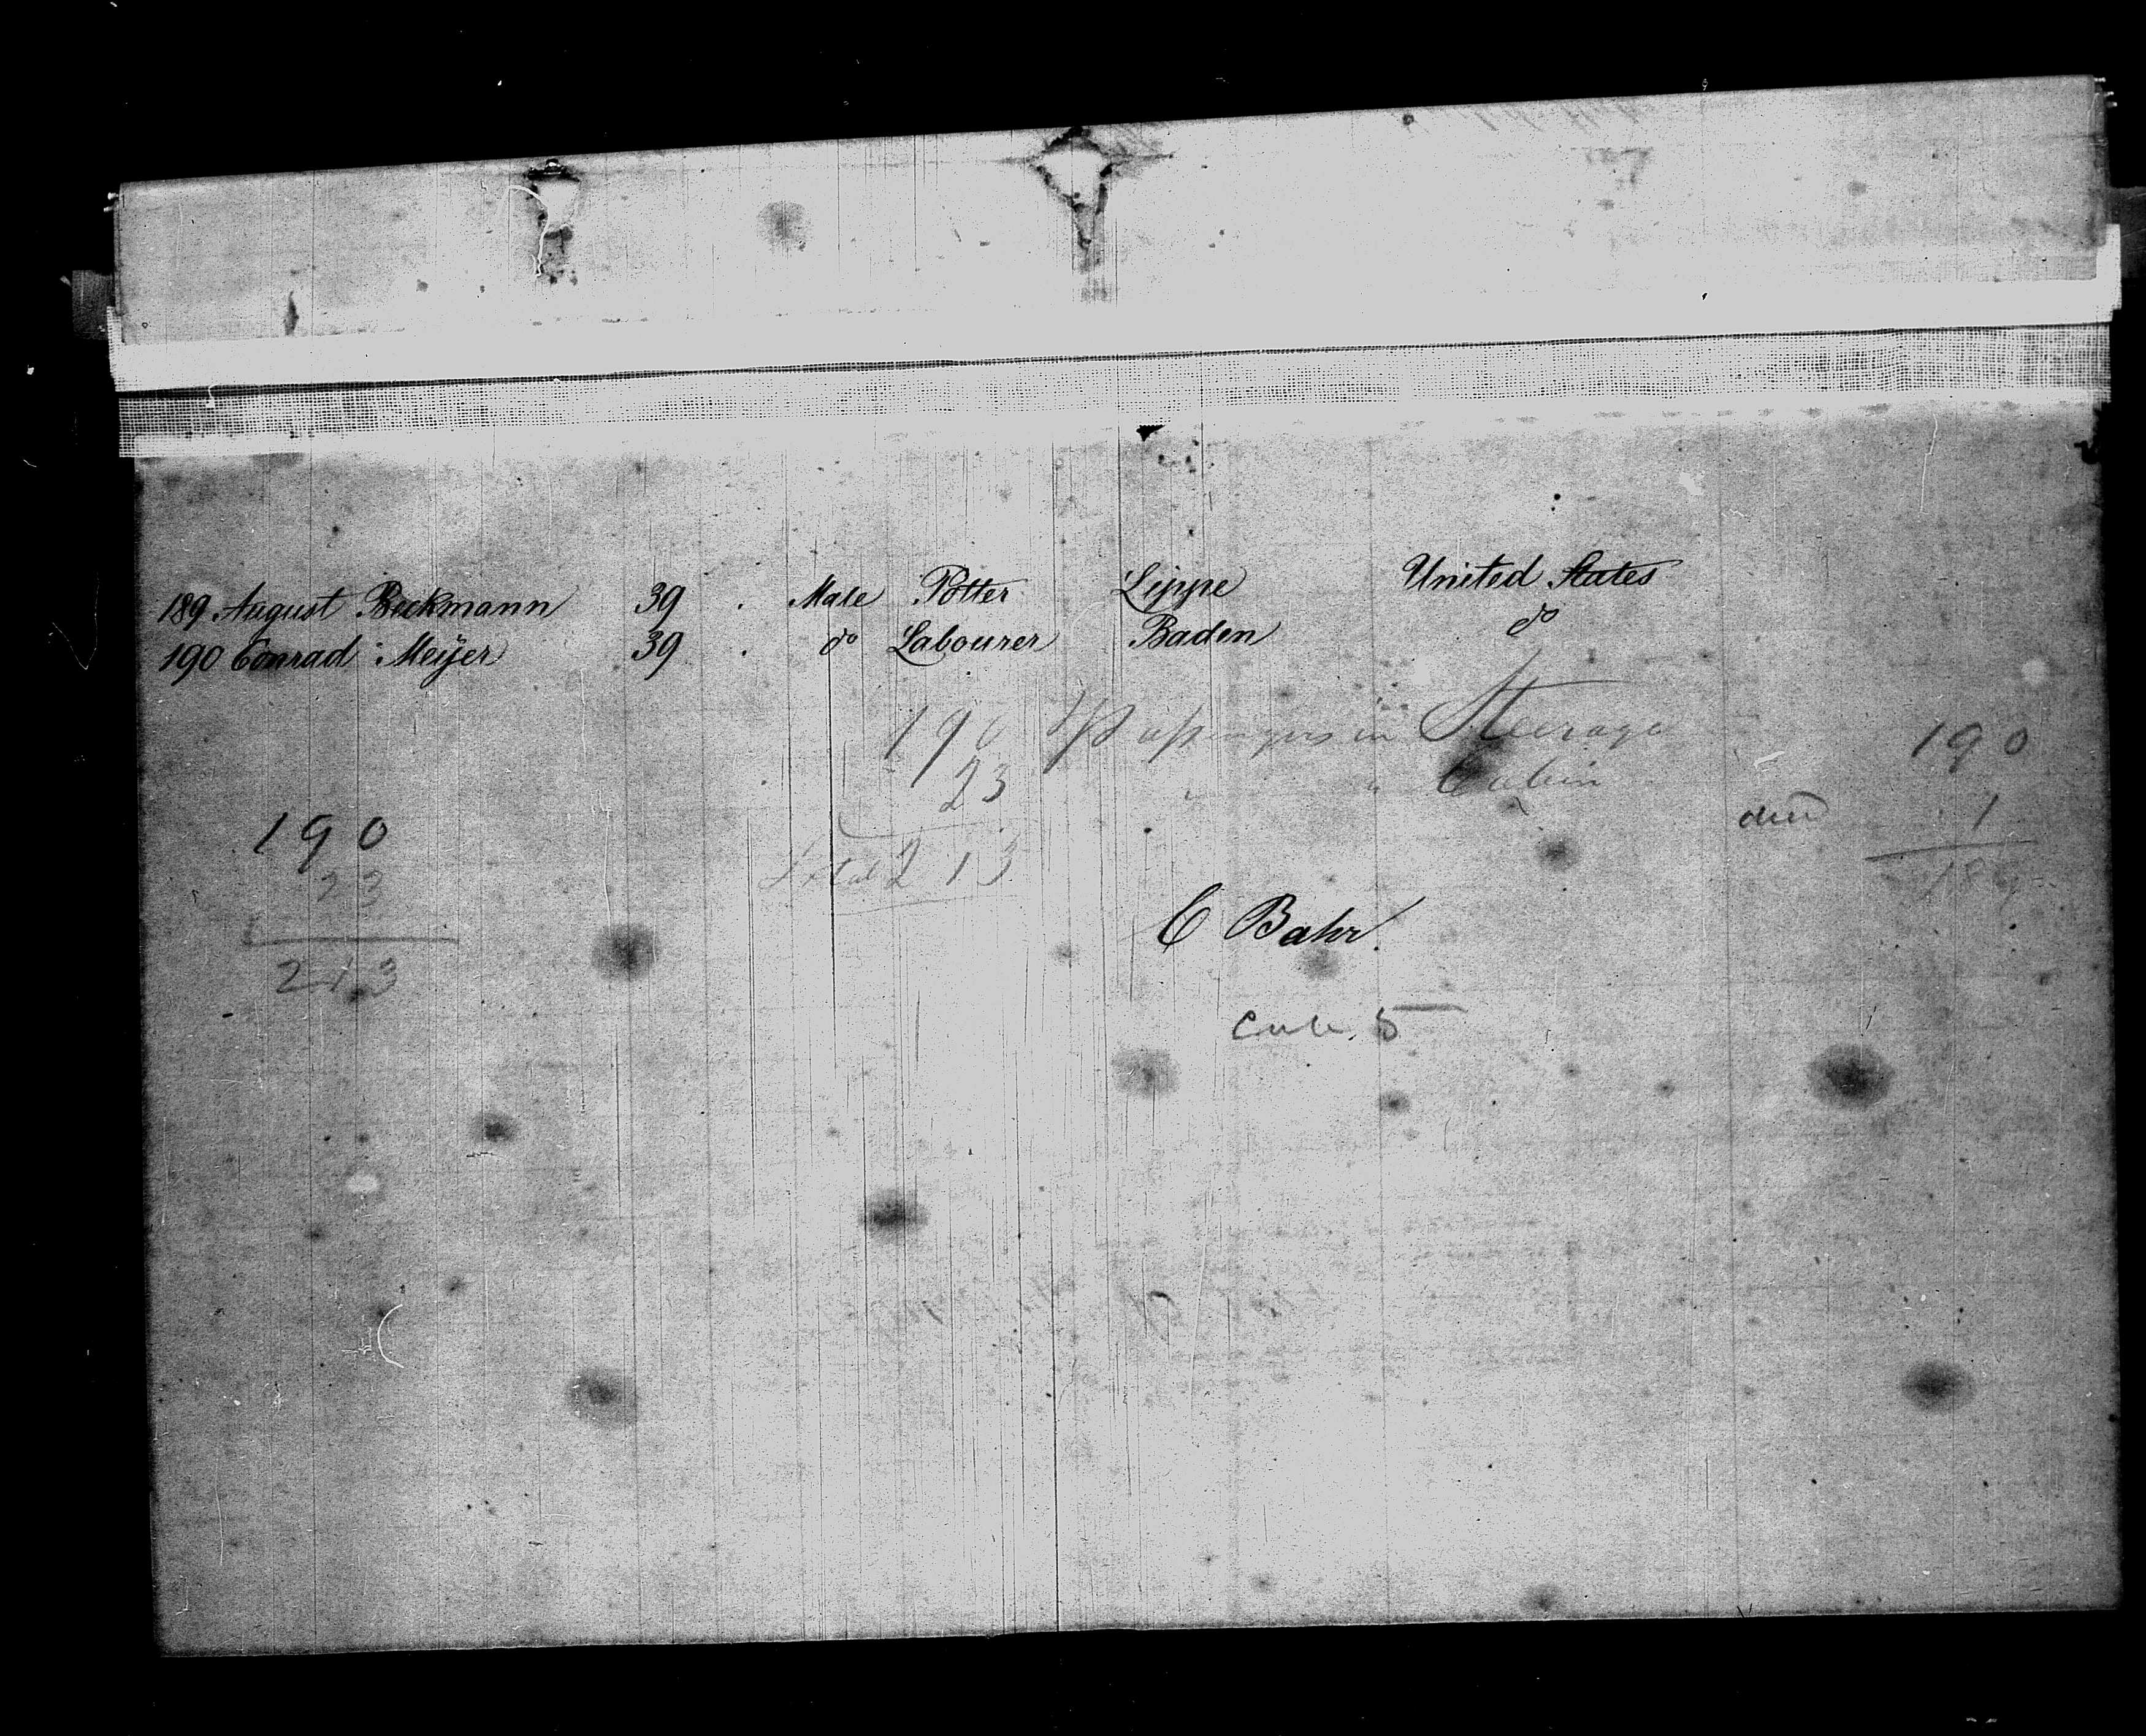 189 August Beckmann 39 . Male Potter Lippe United States
190 Conrad Meijer 39 . do Labourer Baden do
190 Passengers in Steerage
23 " " Cabin
Total 213
190
23
213
190
died 1
189
C Bahr.
5